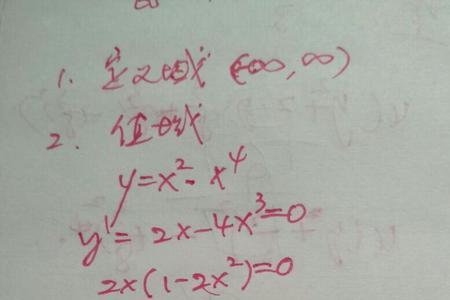 1. 定义域 (-∞, ∞)
2. 值域
y=x²-x⁴
y'=2x-4x³=0
2x(1-2x²)=0